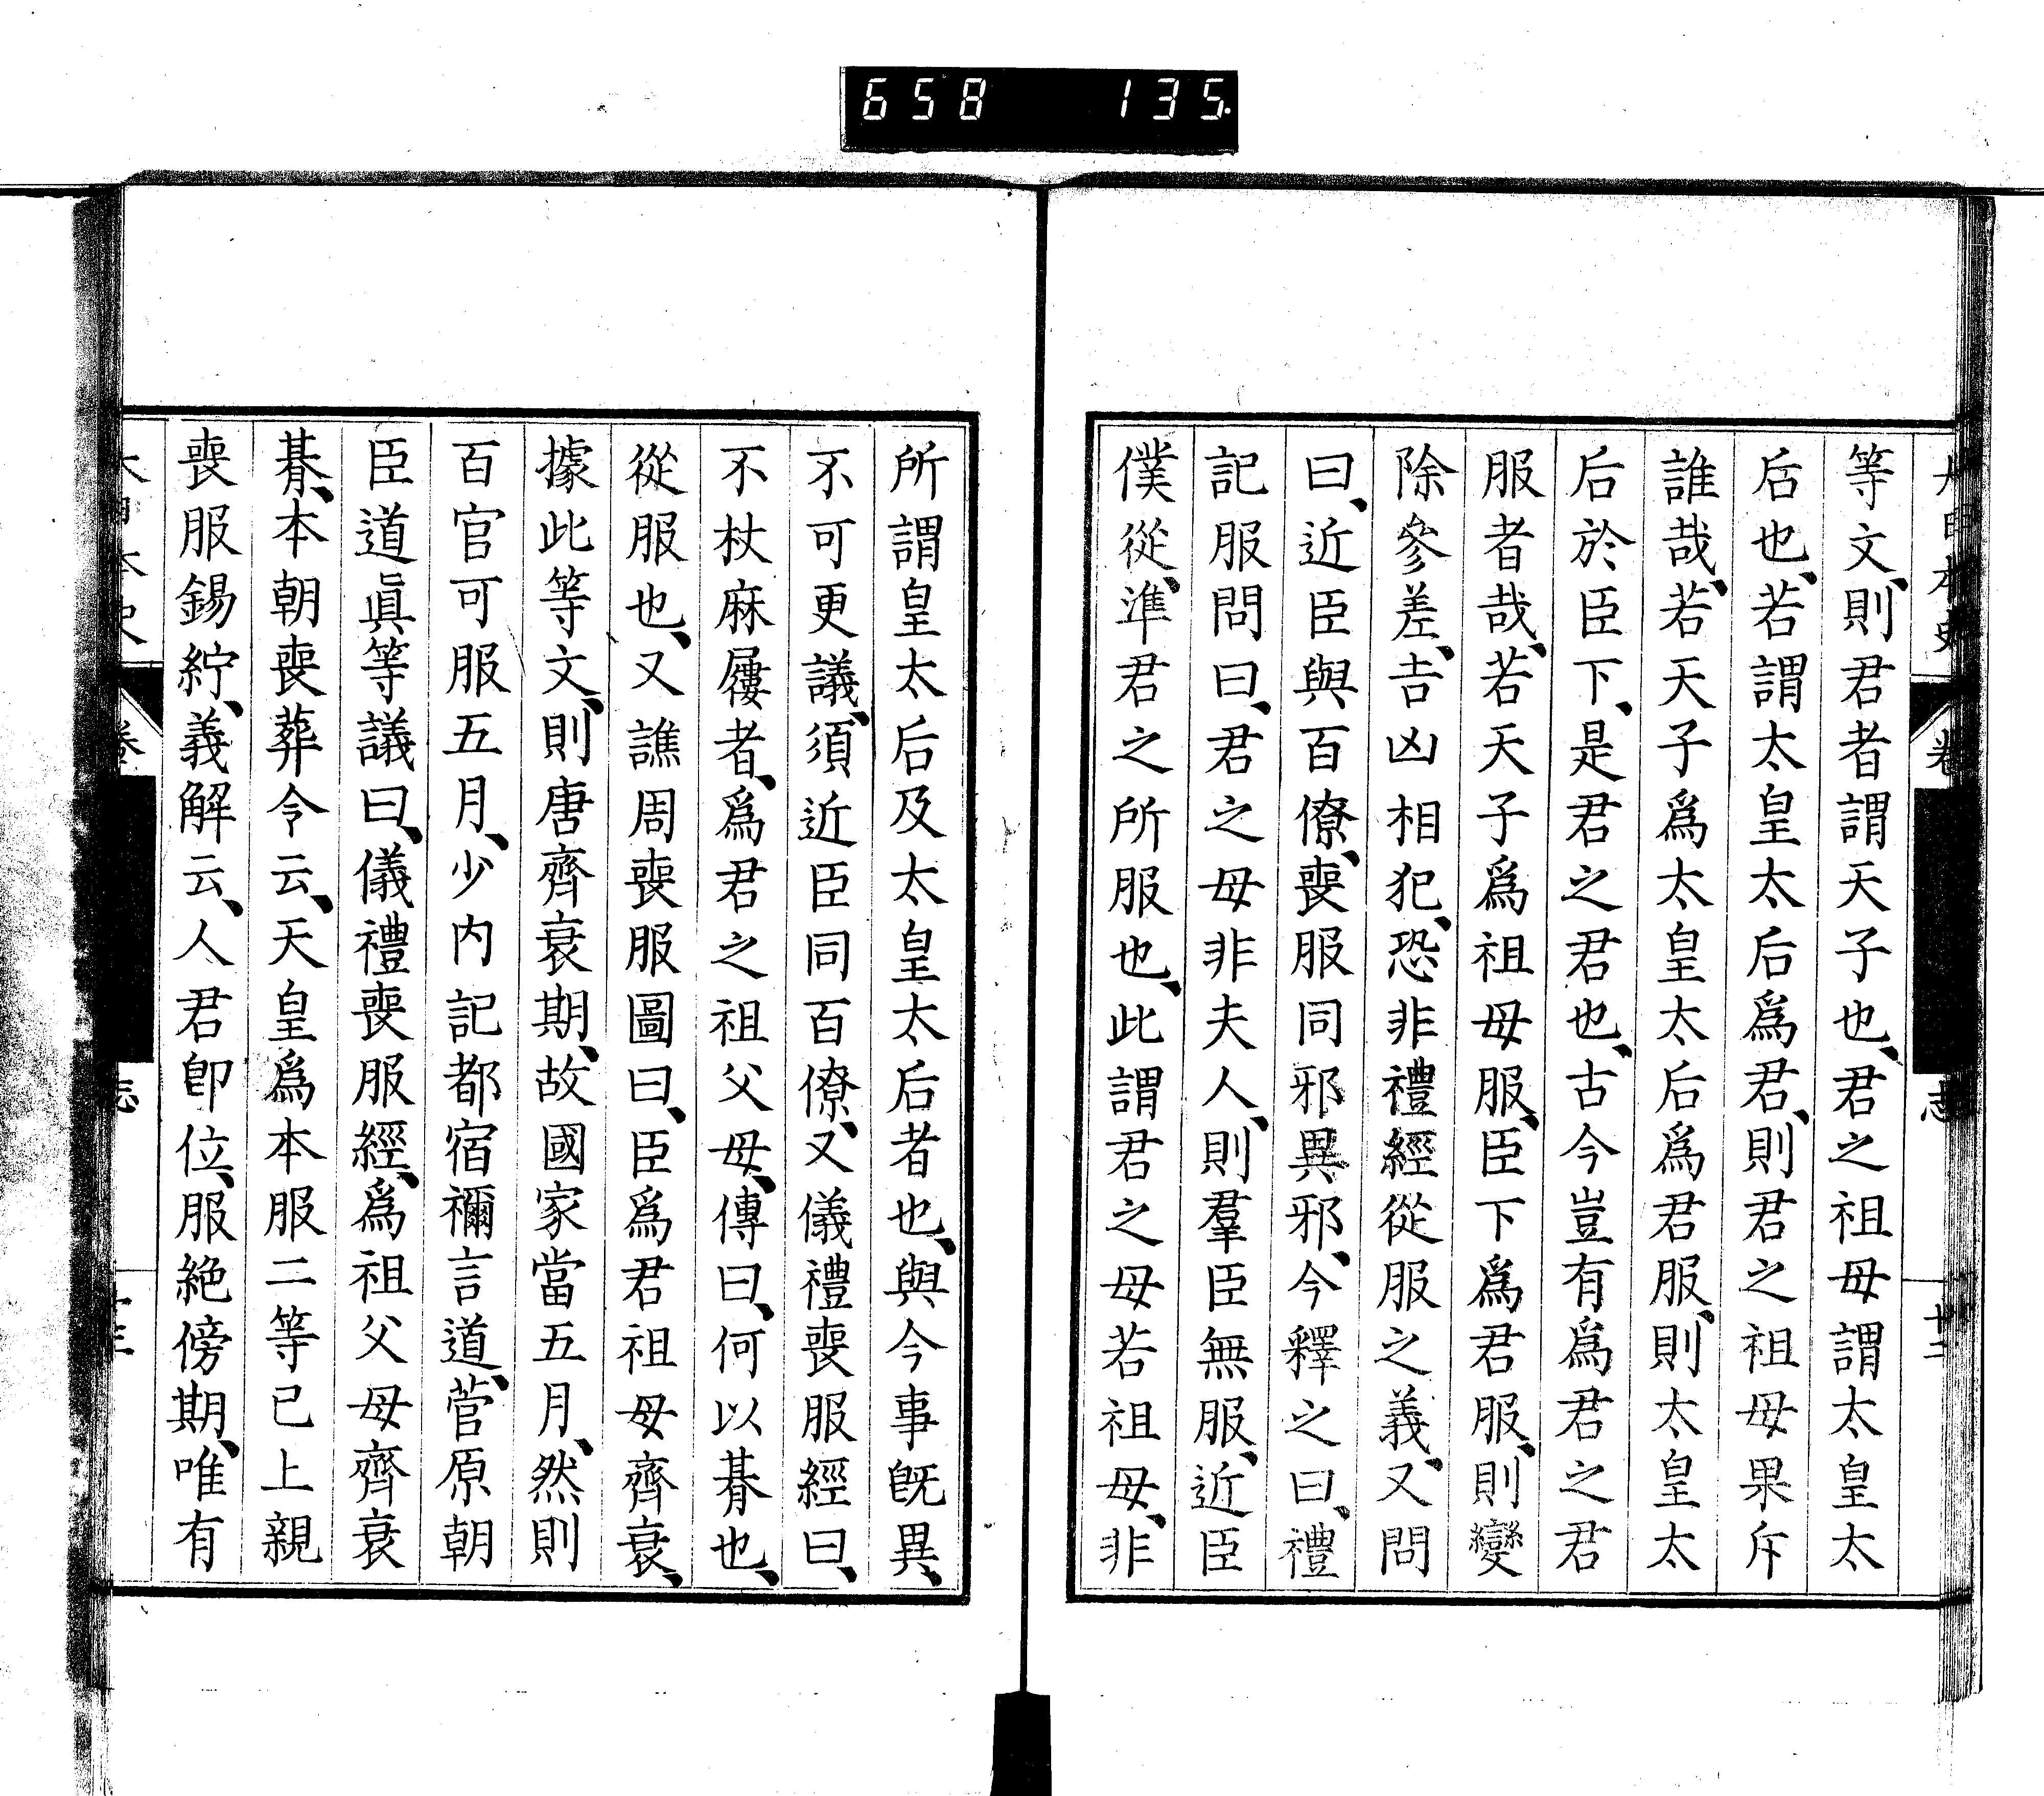 658 135
大日本史 卷 志 廿二
等文、則君者謂天子也、君之祖母謂太皇太
后也、若謂太皇太后爲君、則君之祖母果斥
誰哉、若天子爲太皇太后爲君服、則太皇太
后於臣下、是君之君也、古今豈有爲君之君
服者哉、若天子爲祖母服、臣下爲君服、則變
除參差、吉凶相犯、恐非禮經從服之義、又問
曰、近臣與百僚、喪服同邪異邪、今釋之曰、禮
記服問曰、君之母非夫人、則羣臣無服、近臣
僕從、準君之所服也、此謂君之母若祖母、非
所謂皇太后及太皇太后者也、與今事既異、
不可更議、須近臣同百僚、又儀禮喪服經曰、
不杖麻屨者、爲君之祖父母、傳曰、何以朞也、
從服也、又譙周喪服圖曰、臣爲君祖母齊衰、
據此等文、則唐齊衰期、故國家當五月、然則
百官可服五月、少内記都宿禰言道、菅原朝
臣道眞等議曰、儀禮喪服經、爲祖父母齊衰
朞、本朝喪葬令云、天皇爲本服二等已上親
喪服錫紵、義解云、人君卽位、服絶傍期、唯有
卷 志